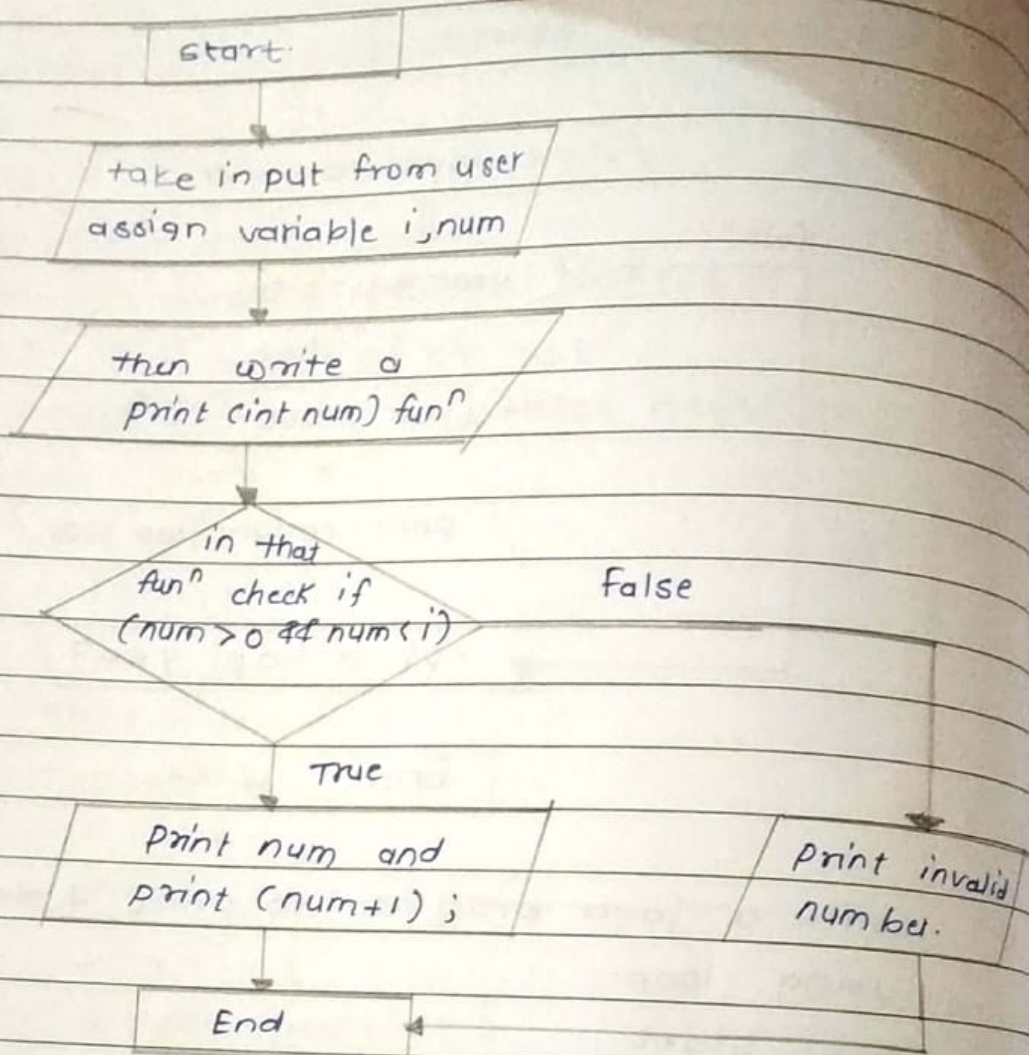 start.
take input from user
assign variable i, num
then write a
print (int num) funⁿ
in that
funⁿ check if
(num > 0 && num < i)
False
True
print num and
print (num+1) ;
print invalid
number.
End